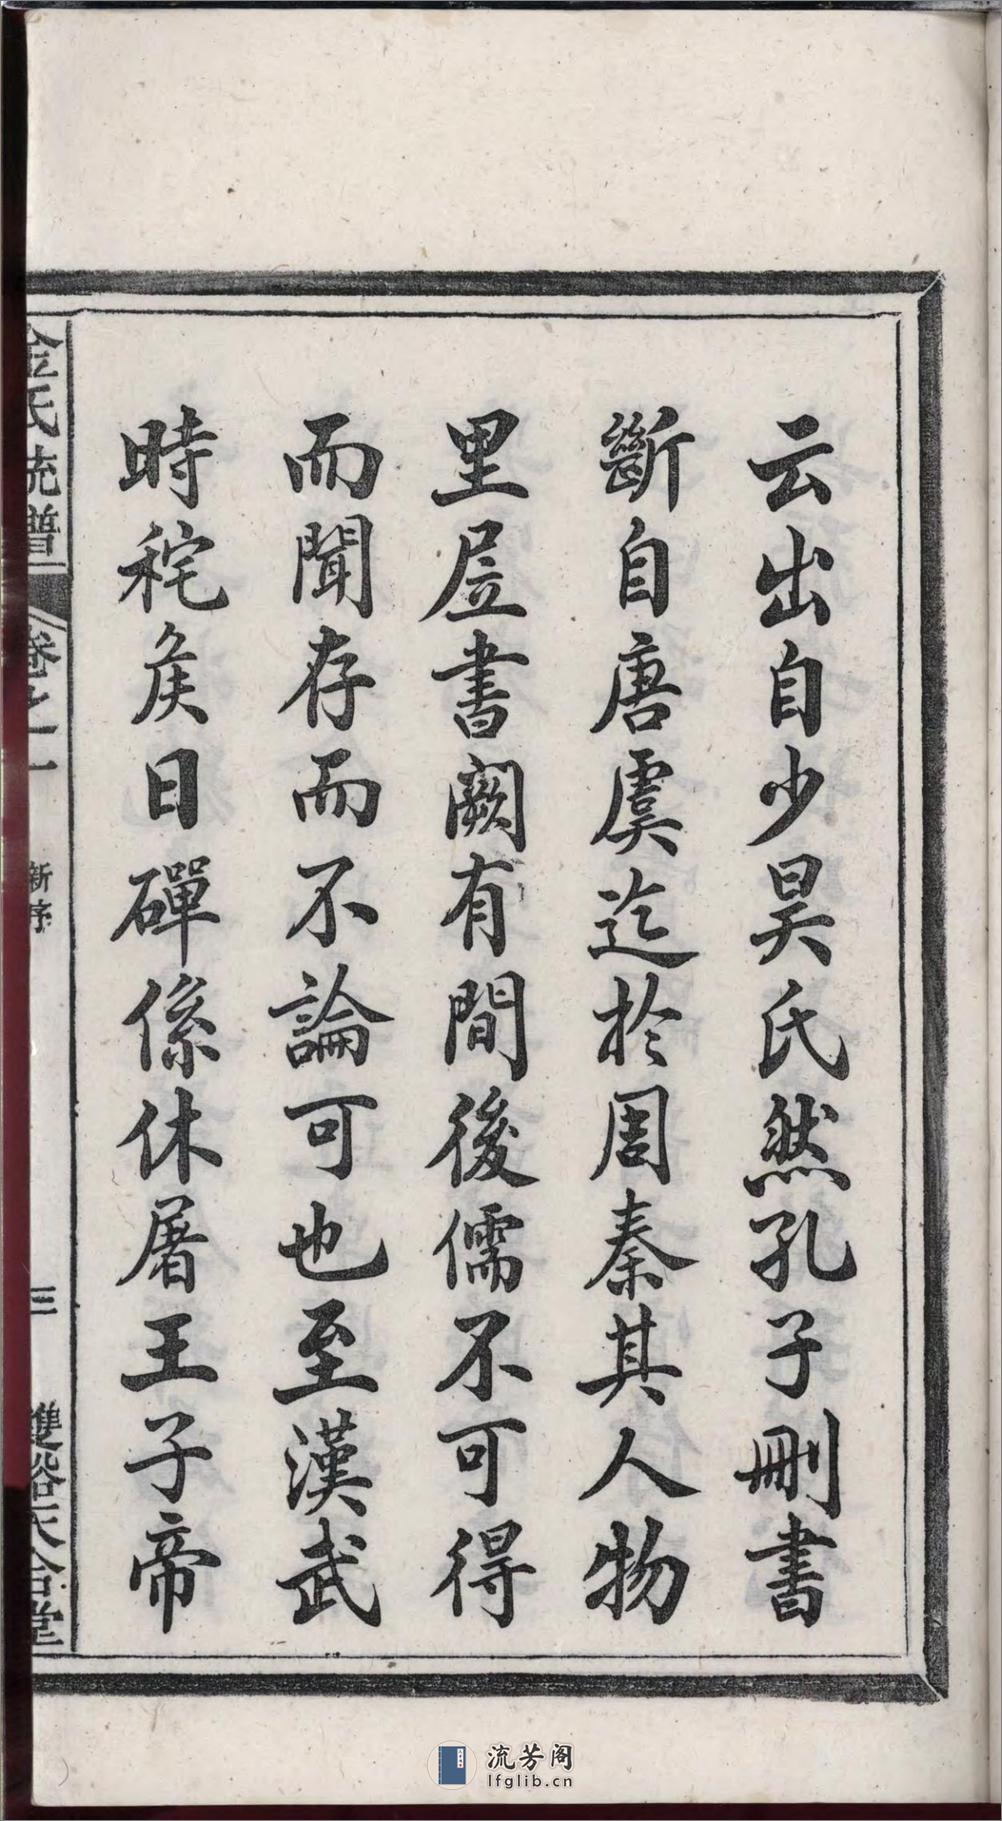 云出自少昊氏然孔子刪書
斷自唐虞迄於周秦其人物
里居書闕有間後儒不可得
而聞存而不論可也至漢武
時秺矦日磾係休屠王子帝
金氏統譜
卷之一
新序
三
雙谿天合堂
流芳阁
lfglib.cn